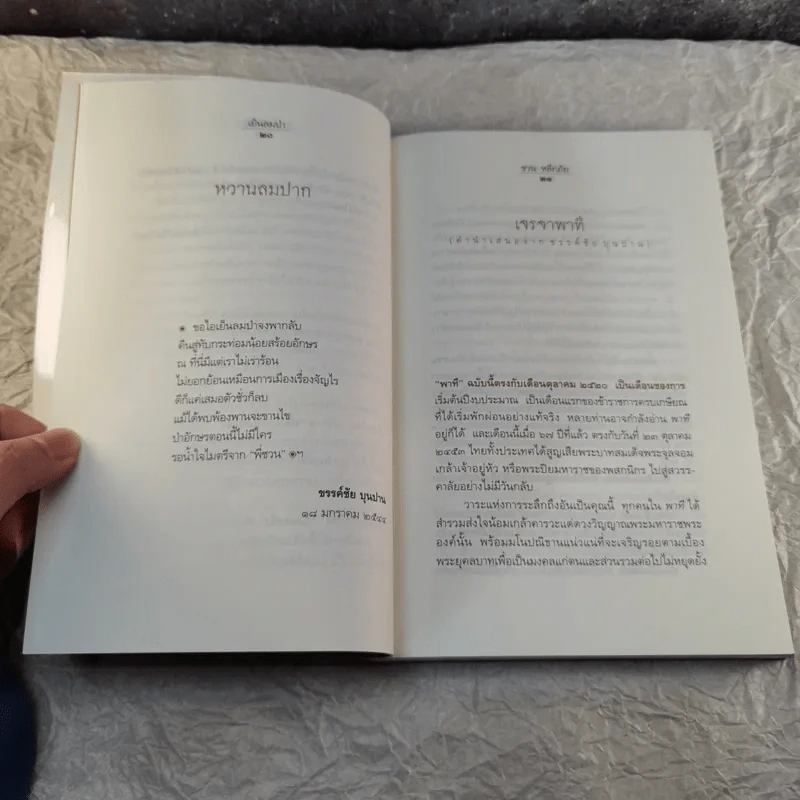 เย็นลมป่า
๒๐
หวานลมปาก
๏ ขอไอเย็นลมป่าจงพากลับ
คืนสู่ทับกระท่อมน้อยสร้อยอักษร
ณ ที่นี่มีแต่เราไม่เร่าร้อน
ไม่ยอกย้อนเหมือนการเมืองเรื่องจัญไร
ดีก็แค่เสมอตัวชั่วก็ลบ
แม้ได้พบพ้องพานจะขานไข
ป่าอักษรตอนนี้ไม่มีใคร
รอน้ำใจไมตรีจาก "พี่ชวน" ๏ฯ
ขรรค์ชัย บุนปาน
๑๘ มกราคม ๒๕๔๔
ชวน หลีกภัย
๒๑
เจรจาพาที
(คำนำเสนอจาก ขรรค์ชัย บุนปาน)
"พาที" ฉบับนี้ตรงกับเดือนตุลาคม ๒๕๒๐ เป็นเดือนของการ
เริ่มต้นปีงบประมาณ เป็นเดือนแรกของข้าราชการครบเกษียณ
ที่ได้เริ่มพักผ่อนอย่างแท้จริง หลายท่านอาจกำลังอ่าน พาที
อยู่ก็ได้ และเดือนนี้เมื่อ ๖๗ ปีที่แล้ว ตรงกับวันที่ ๒๓ ตุลาคม
๒๔๕๓ ไทยทั้งประเทศได้สูญเสียพระบาทสมเด็จพระจุลจอม
เกล้าเจ้าอยู่หัว หรือพระปิยมหาราชของพสกนิกร ไปสู่สวรร-
คาลัยอย่างไม่มีวันกลับ
วาระแห่งการระลึกถึงอันเป็นคุณนี้ ทุกคนใน พาที ได้
สำรวมส่งใจน้อมเกล้าคารวะแด่ดวงวิญญาณพระมหาราชพระ
องค์นั้น พร้อมมโนปณิธานแน่วแน่ที่จะเจริญรอยตามเบื้อง
พระยุคลบาทเพื่อเป็นมงคลแก่ตนและส่วนรวมต่อไปไม่หยุดยั้ง